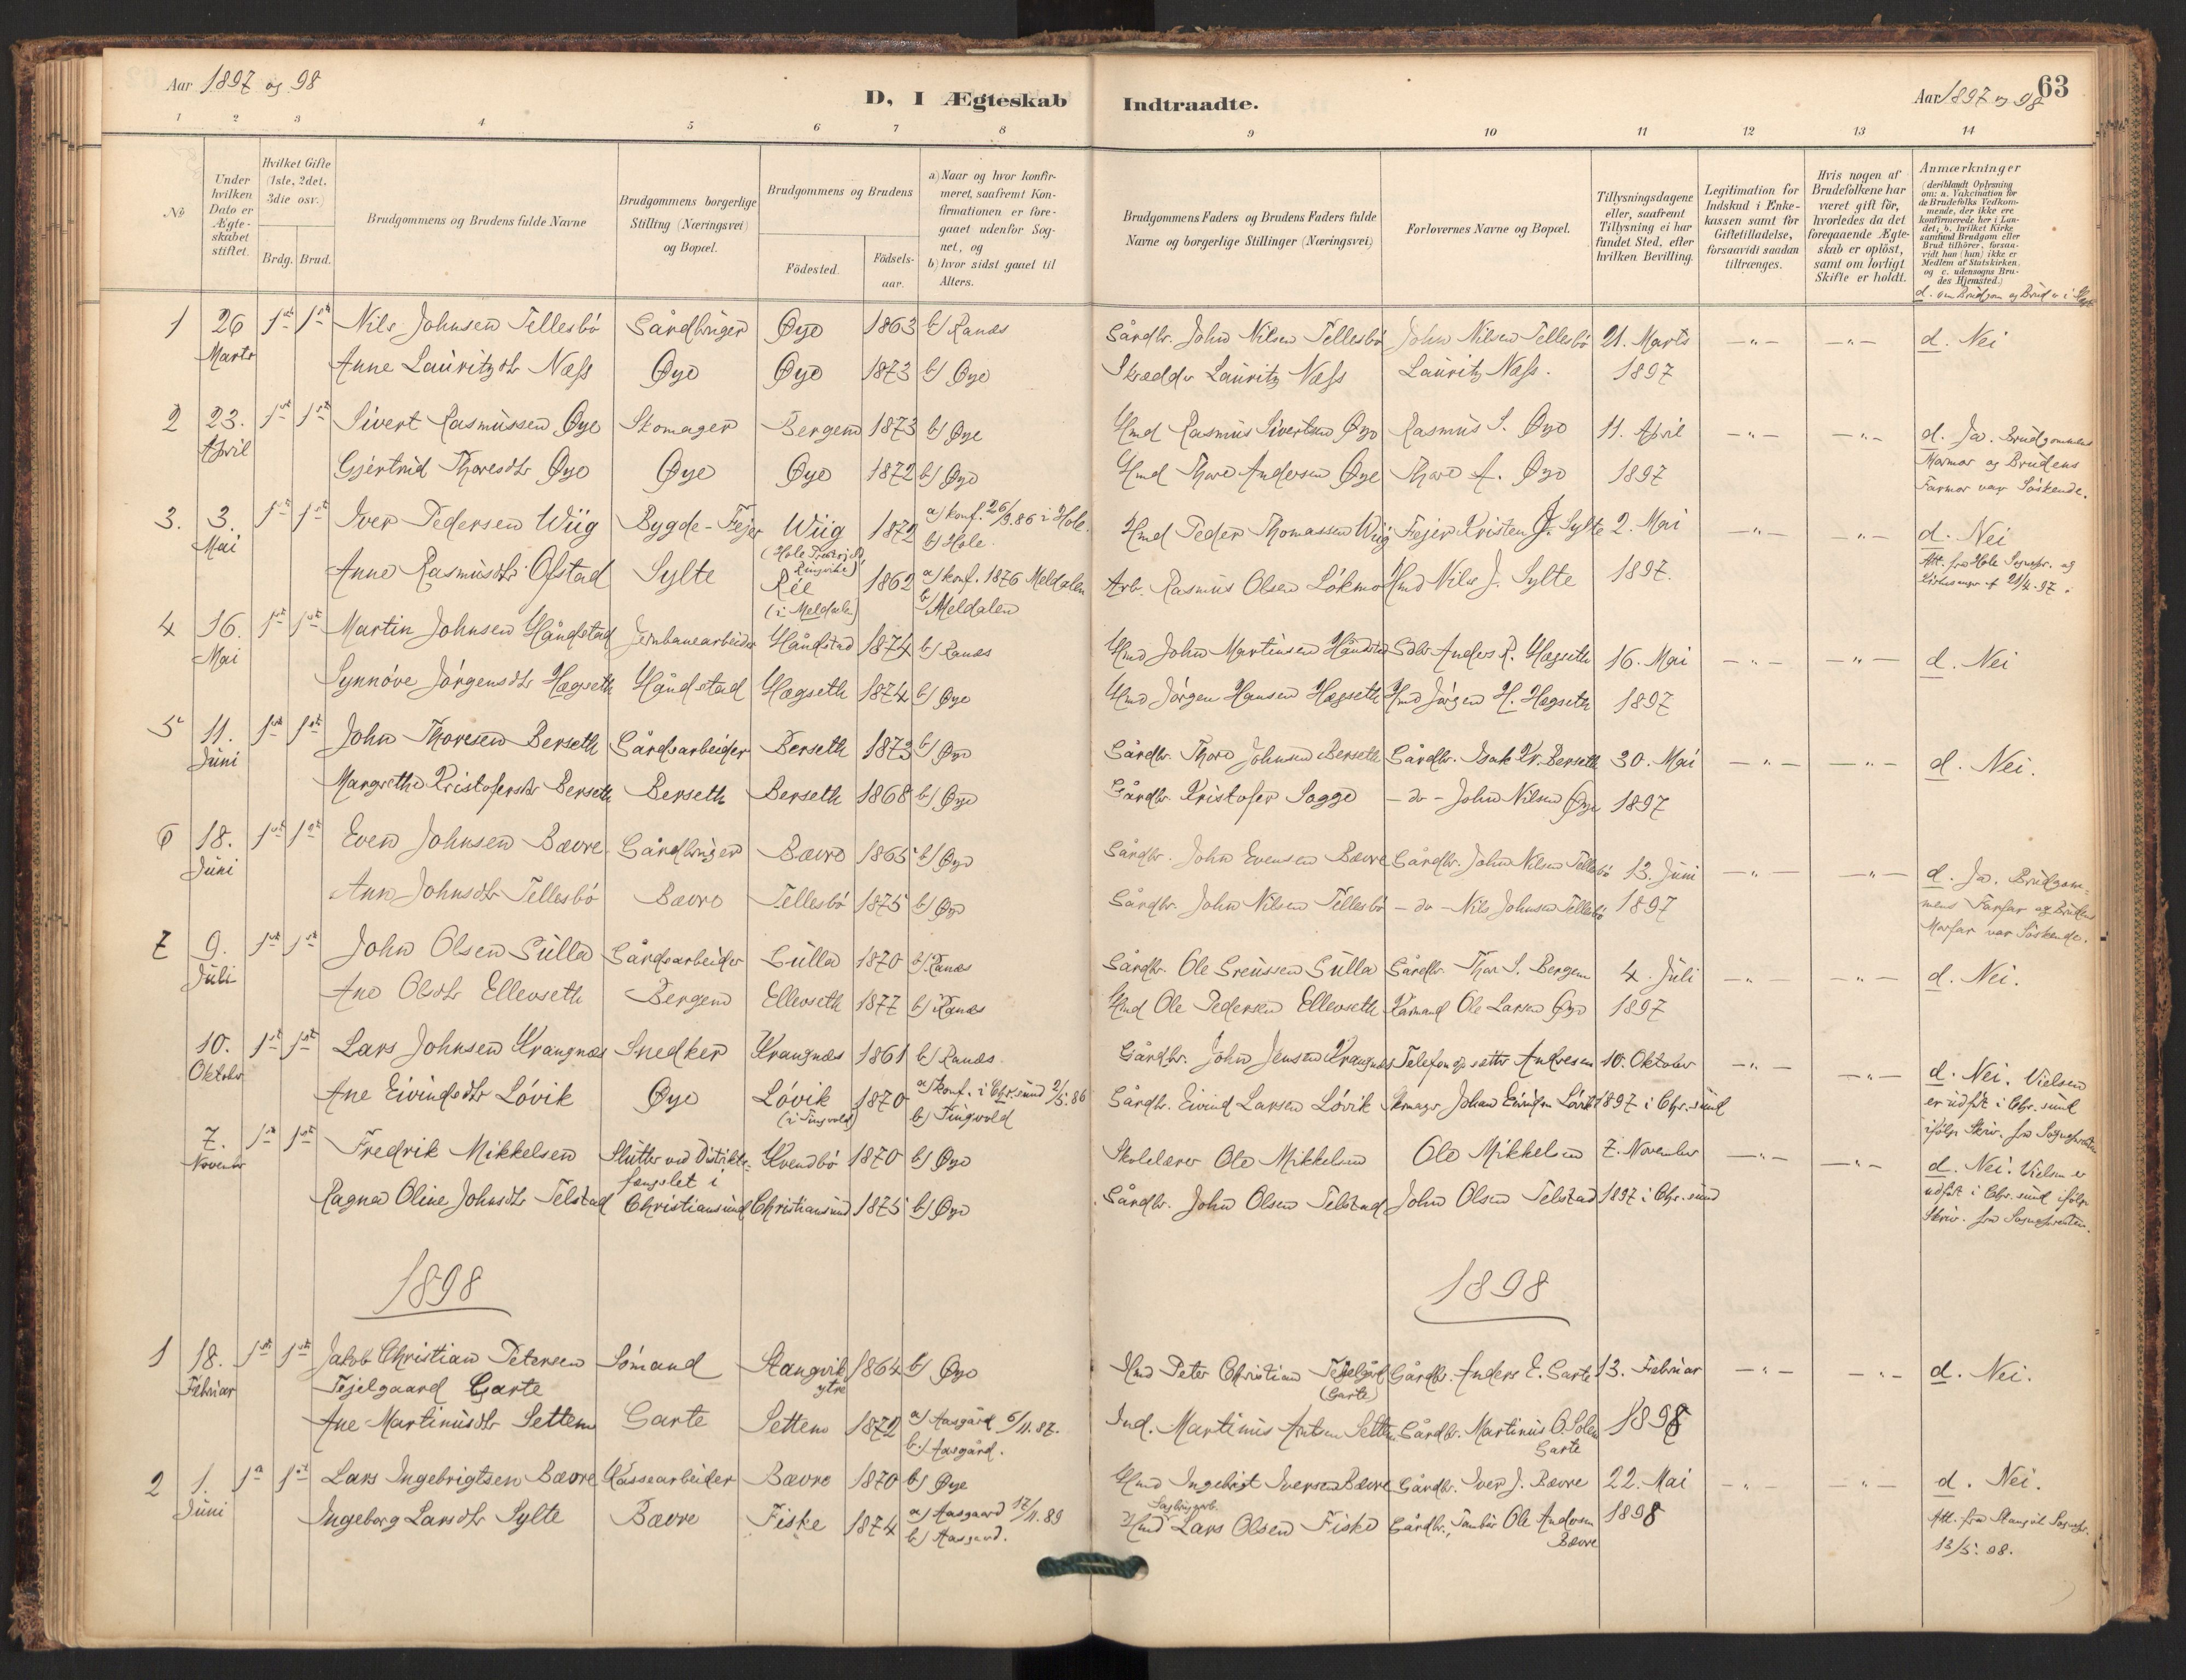 Aar 1897 og 98
D, I Ægteskab Indtraadte.
Aar 1897 og 98
63
1 2 3 4 5 6 7 8 9 10 11 12 13 14
No
Under hvilken Dato er Ægteskabet stiftet.
Hvilket Gifte (1ste, 2det, 3die osv.)
Brdg. Brud.
Brudgommens og Brudens fulde Navne
Brudgommens borgerlige Stilling (Næringsvei) og Bopæl.
Brudgommens og Brudens
Födested. Födselsaar.
a) Naar og hvor konfirmeret, saafremt Konfirmationen er foregaaet udenfor Sognet, og
b) hvor sidst gaaet til Alters.
Brudgommens Faders og Brudens Faders fulde Navne og borgerlige Stillinger (Næringsvei)
Forlovernes Navne og Bopæl.
Tillysningsdagene eller, saafremt Tillysning ei har fundet Sted, efter hvilken Bevilling.
Legitimation for Indskud i Enkekassen samt for Giftetilladelse, forsaavidt saadan tiltrænges.
Hvis nogen af Brudefolkene har været gift för, hvorledes da det foregaaende Ægteskab er oplöst, samt om lovligt Skifte er holdt.
Anmærkninger
(deriblandt Oplysning om: a. Vakcination for de Brudefolks Vedkommende, der ikke ere konfirmerede her i Landet; b. hvilket Kirkesamfund Brudgom eller Brud tilhörer, forsaavidt han (hun) ikke er Medlem af Statskirken, og c. udensogns Brudes Hjemsted.)
d. om Brudgom og Brud er i
1 26 1ste 1ste Nils Johnsen Tellesbö Gårdbruger Øye 1863 b) Ranæs Gårdbr. John Nilsen Tellesbö John Nilsen Tellesbö 21. Marts —„— —„— d. Nei
Marts Anne Lauritzdtr Næss Øye Øye 1873 b) Øye Skrædder Lauritz Næss Lauritz Næss. 1897
2 23. 1ste 1ste Sivert Rasmussen Øye Skomager Bergem 1873 b) Øye Hmd Rasmus Sivertsen Øye Rasmus S. Øye 11. April —„— —„— d. Ja. Brudgommens
April Gjertrud Thoresdtr Øye Øye Øye 1872 b) Øye Hmd Thore Andersen Øye Thore A. Øye 1897 Mormor og Brudens
Farmor var Söskende.
3. 3. 1ste 1ste Iver Pedersen Wiig Bygde-Fejer Wiig 1872 a) konf. 26/9.86 i Hole. Hmd Peder Thomassen Wiig Fejer Kristen J. Sylte 2. Mai —„— —„— d. Nei
Mai (Hole Præstegj. Ringerike) b) Hole. Att. fra Hole Sognepr. og
Anne Rasmusdtr Ofstad Sylte Rée 1862 a) konf. 1876 Meldalen Arb. Rasmus Olsen Lökmo Hmd Nils J. Sylte 1897. 21/4.97.
(i Meldalen) b) Meldalen
4 16. 1ste 1ste Martin Johnsen Håndstad Jernbanearbeider Håndstad 1874 b) Ranæs Hmd John Martinsen Håndstad Gdbr. Anders R. Hægseth 16. Mai —„— —„— d. Nei
Mai Synnöve Jörgensdtr Hægseth Håndstad Hægseth 1874 b) Øye Hmd Jörgen Hansen Hægseth Hmd Jörgen H. Hægseth 1897
5 11. 1ste 1ste John Thoresen Berseth Gårdsarbeider Berseth 1873 b) Øye Gårdbr. Thore Johnsen Berseth Gårdbr. Isak Kr. Berseth 30. Mai —„— —„— d. Nei.
Juni Margrethe Kristofersdtr Berseth Berseth Berseth 1868 b) Øye Gårdbr. Kristofer Sogge - do - John Nilsen Øye 1897
6 18. 1ste 1ste Even Johnsen Bævre Gårdbruger Bævre 1865 b) Øye Gårdbr. John Evensen Bævre Gårdbr. John Nilsen Tellesbö 13. Juni —„— —„— d. Ja. Brudgom-
Juni Ann Johnsdtr Tellesbö Bævre Tellesbö 1875 b) Øye Gårdbr. John Nilsen Tellesbö - do - Nils Johnsen Tellesbö 1897 mens Farfar og Brudens
Morfar var Söskende.
7 9. 1ste 1ste John Olsen Gulla Gårdsarbeider Gulla 1870 b) Ranæs Gårdbr. Ole Sreussen Gulla Gårdbr. Thor S. Bergem 4. Juli —„— —„— d. Nei.
Juli Ane Olsdtr Ellevseth Bergem Ellevseth 1877 b) Ranæs Hmd Ole Pedersen Ellevseth Kårmand Ole Larsen Øye 1897
10. 1ste 1ste Lars Johnsen Krangnæs Snedker Krangnæs 1861 b) Ranæs. Gårdbr. John Jensen Krangnæs Telefonopsætter Andresen 10. Oktober —„— —„— d. Nei. Vielsen
Oktober Ane Eivindsdtr Lövik Øye Lövik 1870 a) konf. i Chr.sund 2/5.86 Gårdbr. Eivind Larsen Lövik Skomager Johan Eivindsen Lövik 1897 i Chr.sund er udfört i Chr.sund
(i Tingvold) b) Tingvold ifölge Skriv. fra Sognepresten
7. 1ste 1ste Fredrik Mikkelsen Slutter ved Distrikts- Kvendbö 1870 b) Øye Skolelærer Ole Mikkelsen Ole Mikkelsen 7. November —„— —„— d. Nei. Vielsen er
November fængslet i udfört i Chr.sund ifölge
Ragna Oline Johnsdtr Telstad Christiansund Christiansund 1875 b) Øye Gårdbr. John Olsen Telstad John Olsen Telstad 1897 i Chr.sund Skriv. fra Sognepresten.
1898 1898
1 18. 1ste 1ste Jakob Christian Petersen Sömand Stangvik 1864 b) Øye Hmd Peter Christian Tejelgård Gårdbr. Anders E. Garte 13. Februar —„— —„— d. Nei.
Februar Tejelgaard Garte ytre (Garte)
Ane Martinusdtr Settem Garte Settem 1872 a) Aasgård 6/11.87. Ind. Martinus Arntsen Settem Gårdbr. Martinus O. Solem 1898
b) Aasgård. Garte
2 1. 1ste 1ste Lars Ingebrigtsen Bævre Kassearbeider Bævre 1870 b) Øye Hmd Ingebrigt Iversen Bævre Gårdbr. Iver J. Bævre 22. Mai —„— —„— d. Nei.
Juni Ingeborg Larsdtr Sylte Bævre Fiske 1874 a) Aasgaard 17/11.89 Hmd Lars Olsen Fiske Gårdbr., Tambur Ole Andersen 1898 Att. fra Stangvik Sognepr.
b) Aasgaard. Bævre 13/5.98.